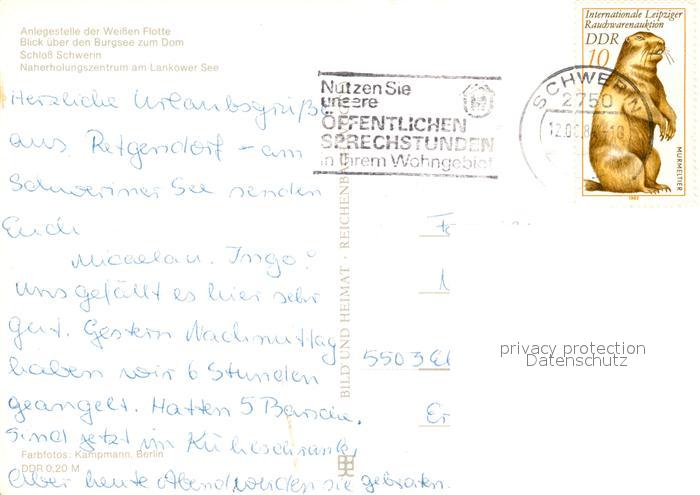 Anlegestelle der Weißen Flotte
Blick über den Burgsee zum Dom
Schloß Schwerin
Naherholungszentrum am Lankower See
Herzliche Urlaubsgrüße
aus Retgendorf - am
Schweriner See senden
Euch
Micaela u. Ingo!
Uns gefällt es hier sehr
gut. Gestern Nachmittag
haben wir 6 Stunden
geangelt. Hatten 5 Barsche,
Sind jetzt im Kühlschrank,
Aber heute Abend werden sie gebraten.
Farbfotos: Kampmann, Berlin
DDR 0,20 M
BILD UND HEIMAT · REICHENB
Nutzen Sie
unsere
ÖFFENTLICHEN
SPRECHSTUNDEN
in Ihrem Wohngebiet
SCHWERIN
2750
Internationale Leipziger
Rauchwarenauktion
DDR
10
MURMELTIER
1982
5503 El
Er
privacy protection
Datenschutz